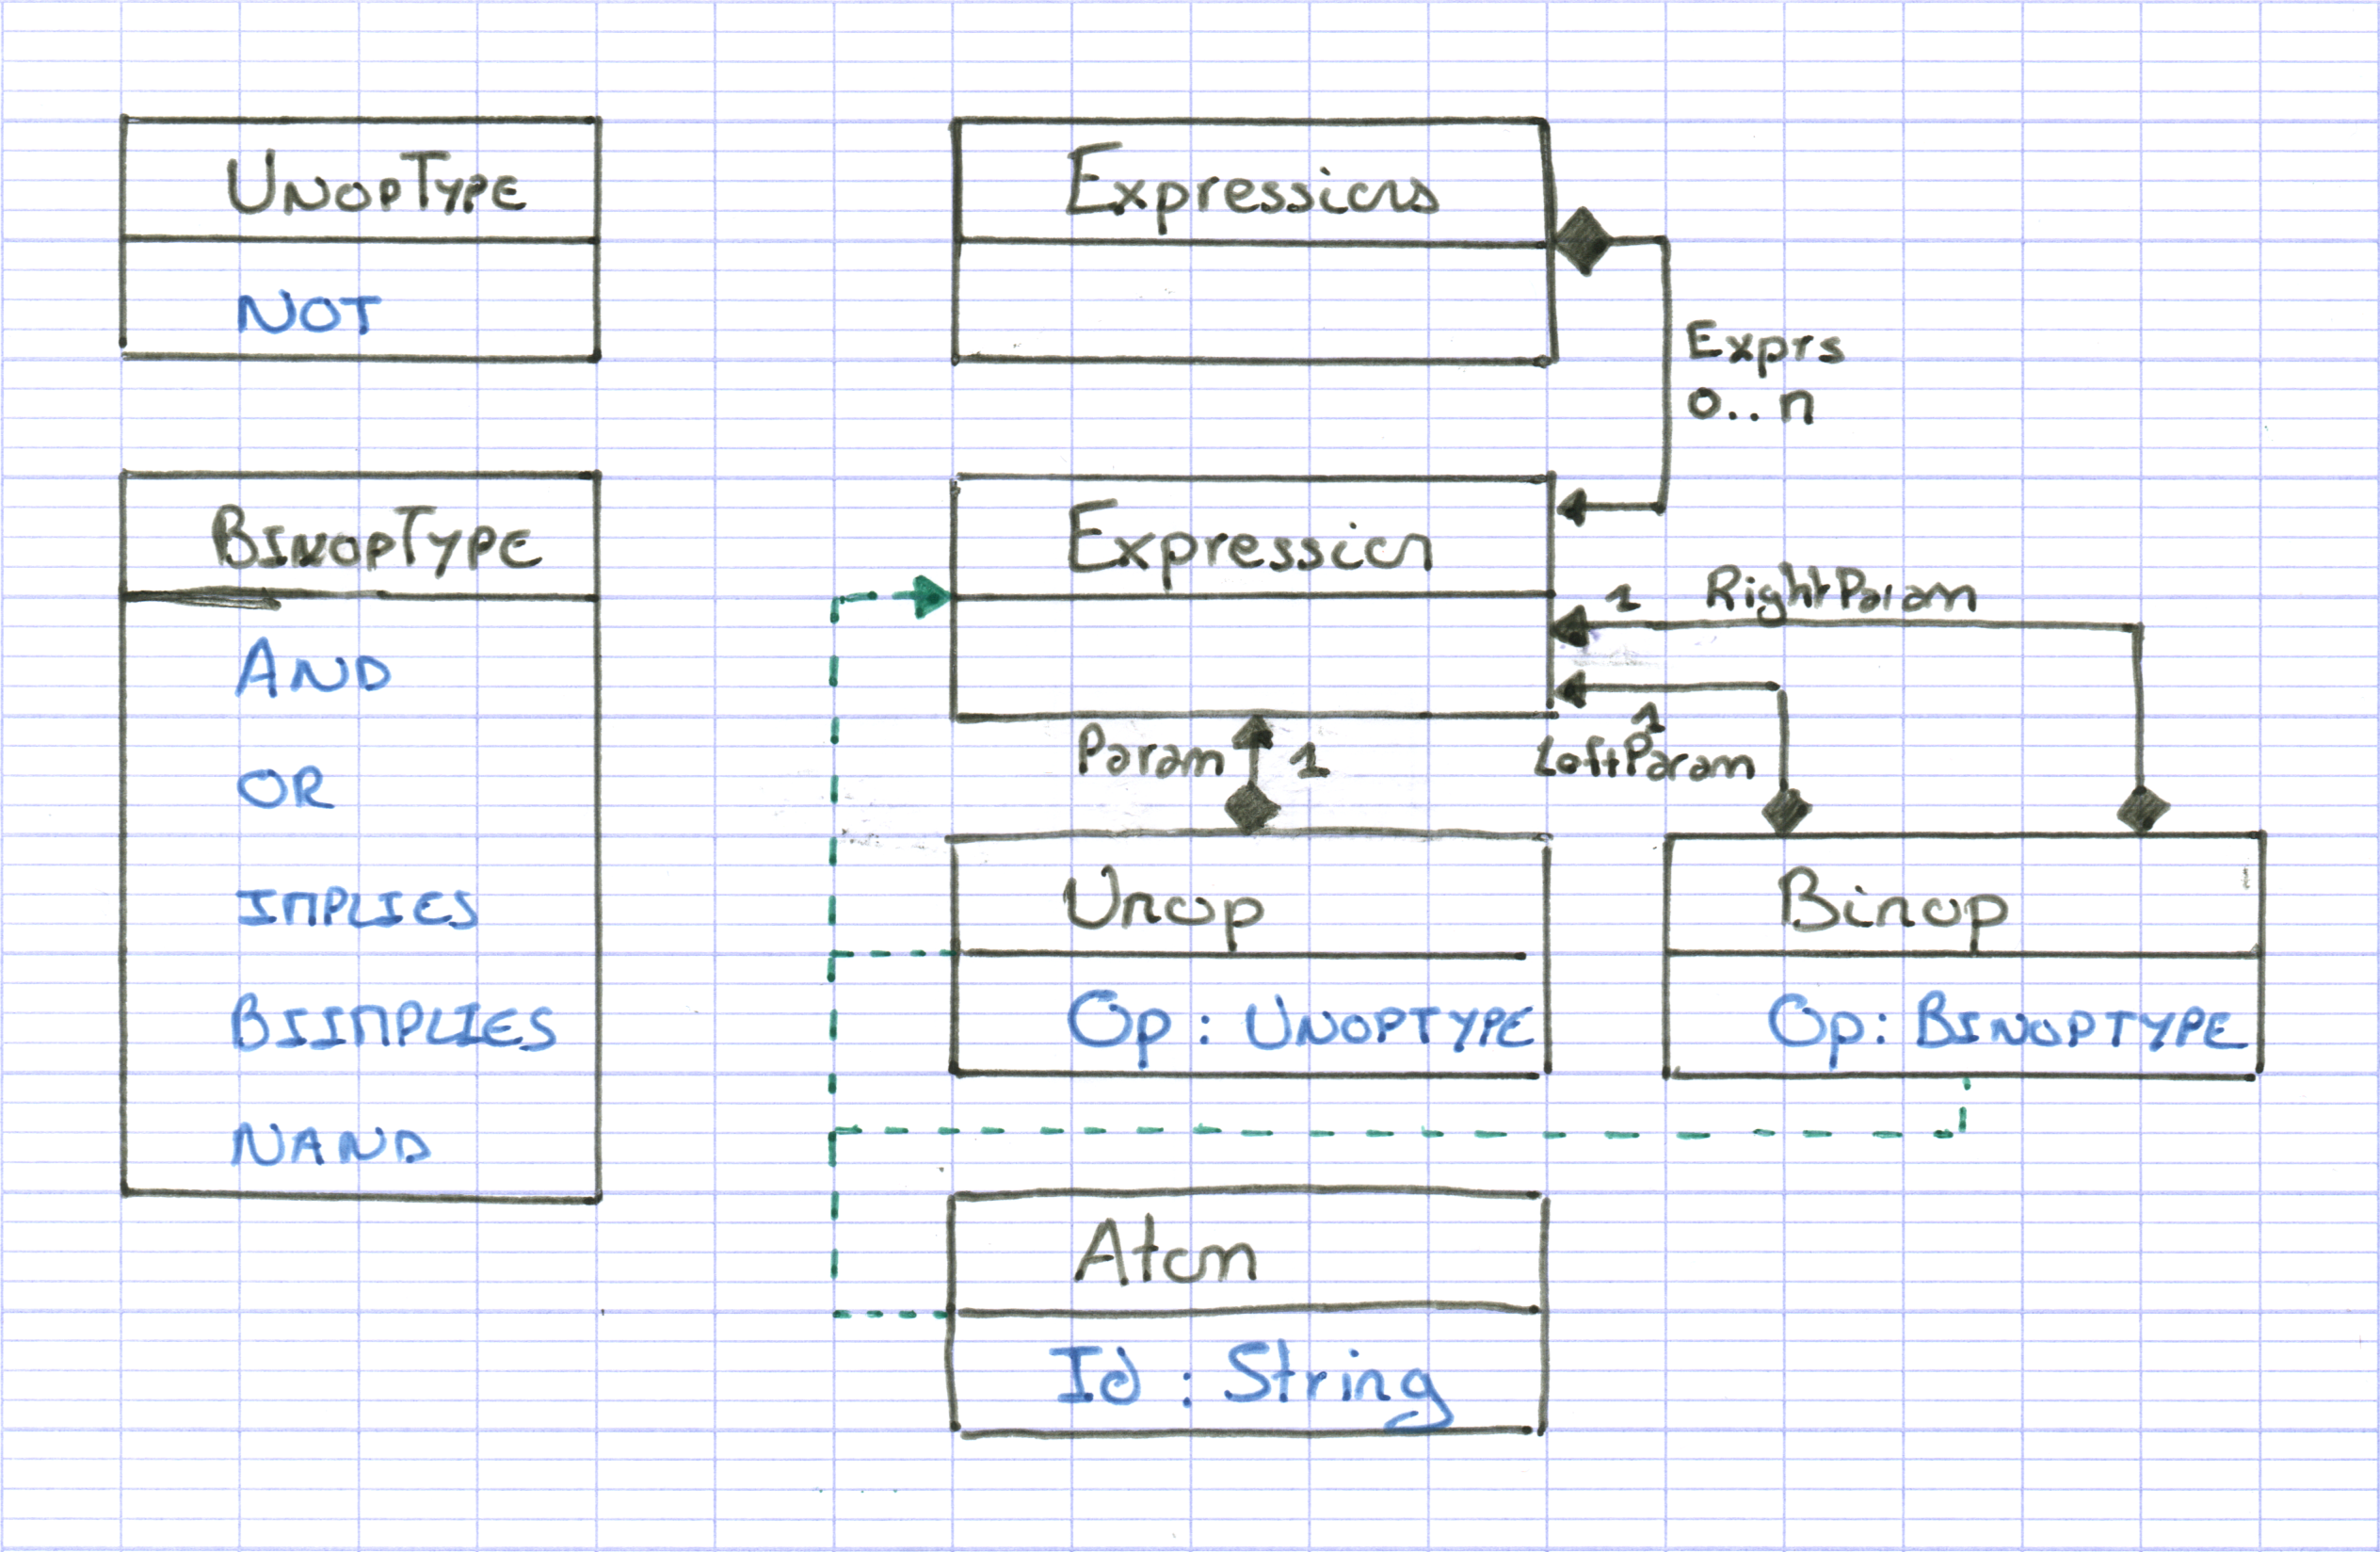 UNOPTYPE
NOT
BINOPTYPE
AND
OR
IMPLIES
BIIMPLIES
NAND
Expressions
Exprs
0..n
Expression
1 RightParam
1
LeftParam
Param 1
Unop
Op : UNOPTYPE
Binop
Op : BINOPTYPE
Atom
Id : String